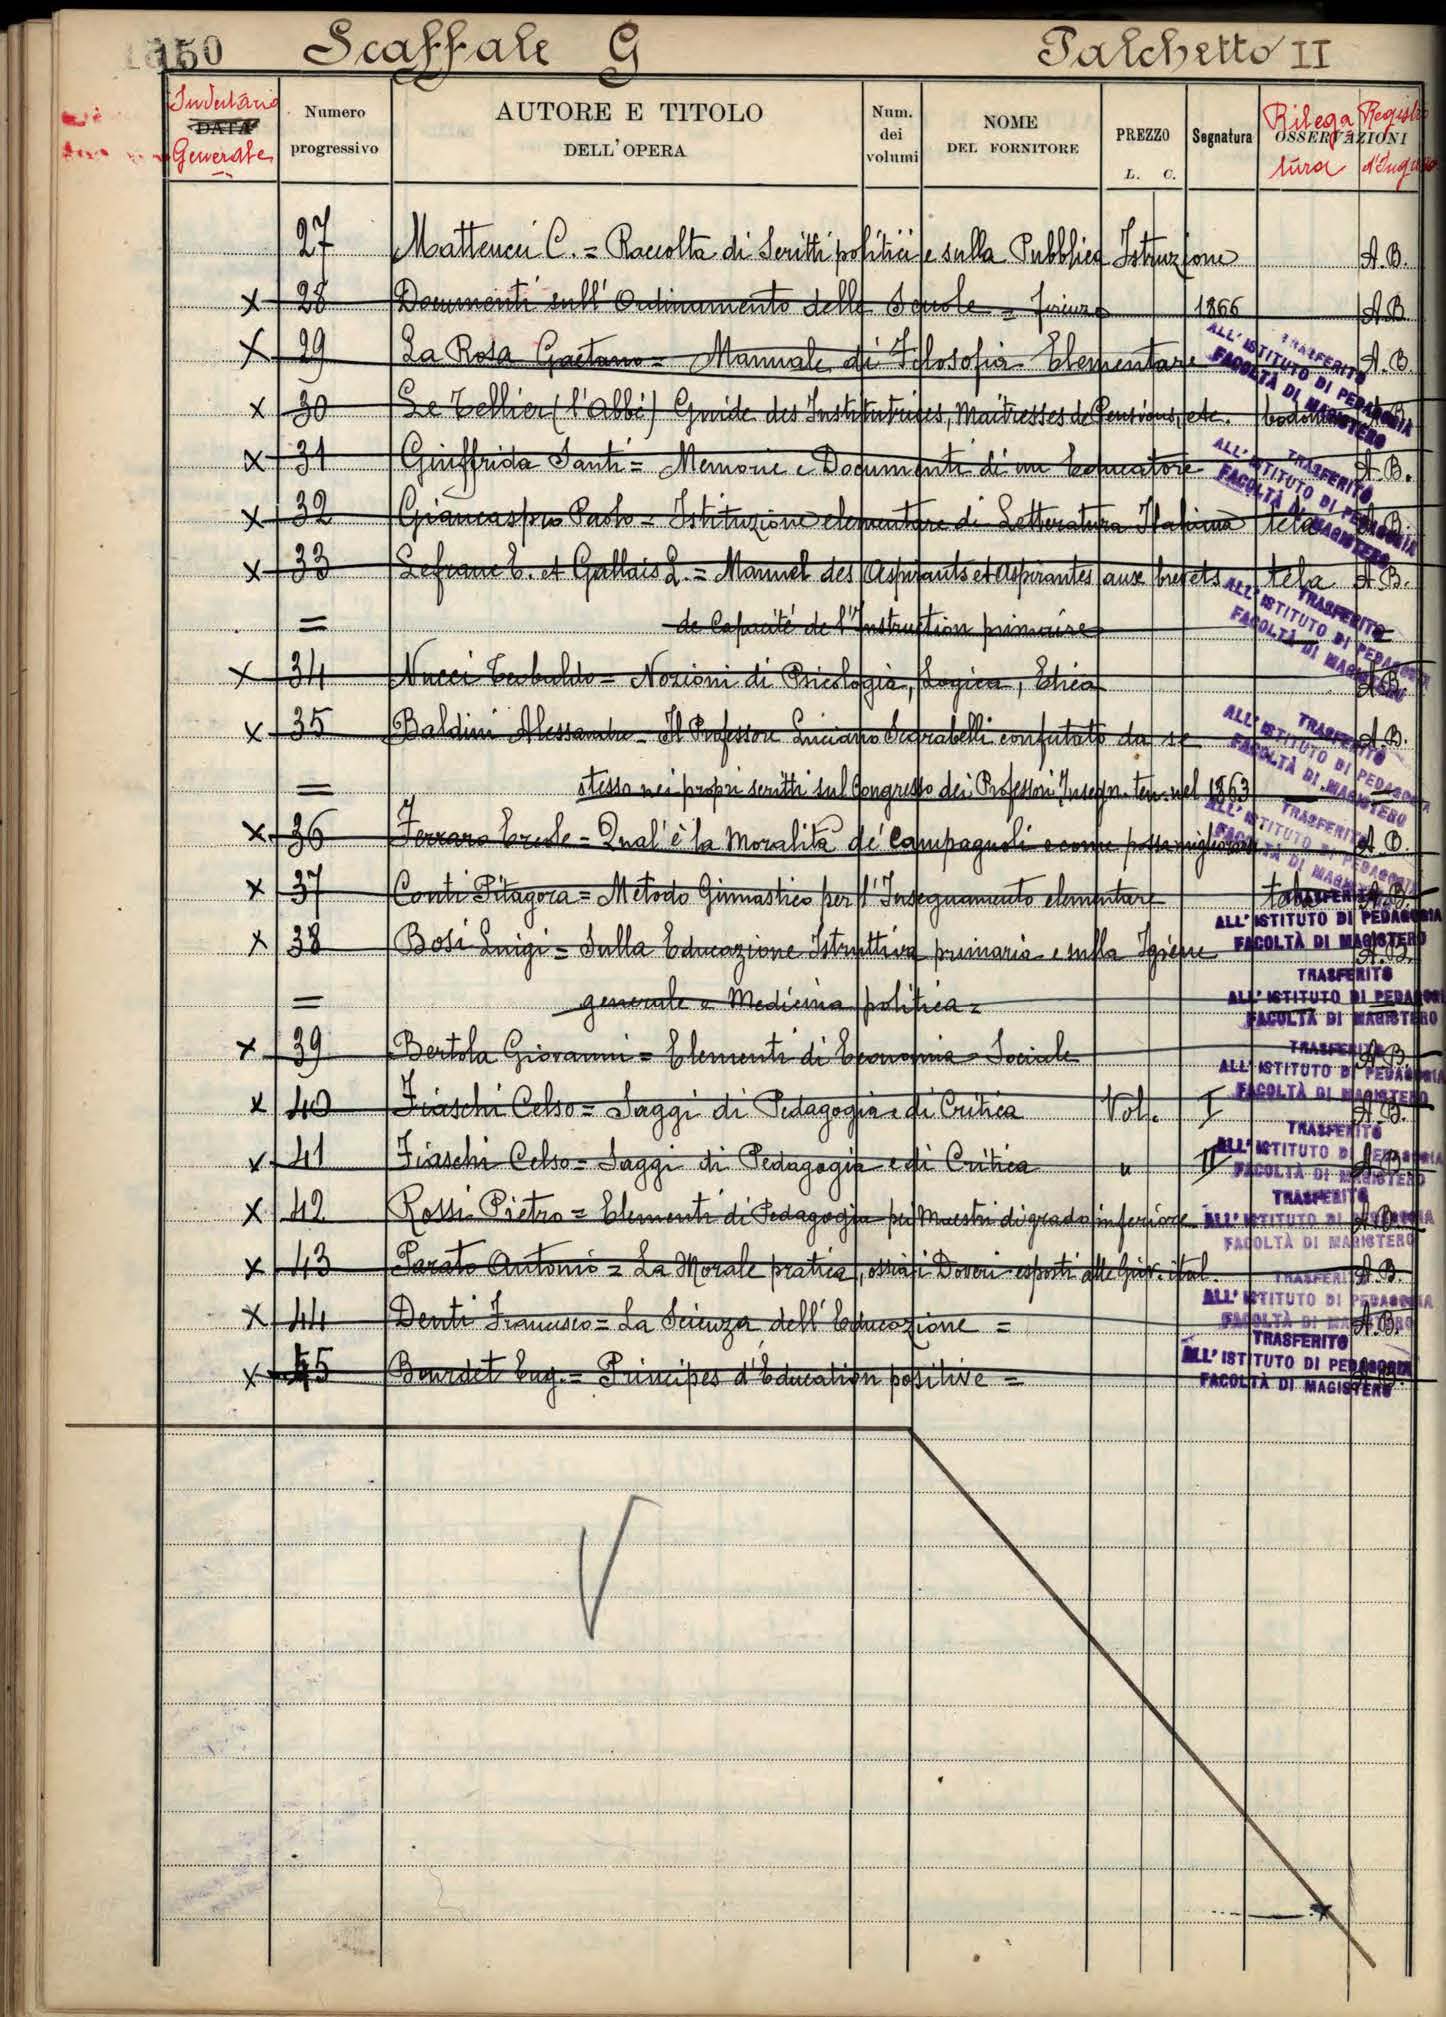 150 Scaffale G Palchetto II
Inventario DATA Generale
Numero progressivo
AUTORE E TITOLO DELL'OPERA
Num. dei volumi
NOME DEL FORNITORE
PREZZO L. C.
Segnatura
OSSERVAZIONI
Rilegatura
Registro
27 Matteucci C. = Raccolta di Scritti politici e sulla Pubblica Istruzione A.B.
x 28 Documenti sull' Ordinamento delle Scuole = Firenze 1866 A.B.
x 29 La Rosa Gaetano = Manuale di Filosofia Elementare A.B.
TRASFERITO
ALL' ISTITUTO DI PEDAGOGIA
FACOLTÀ DI MAGISTERO
x 30 Le Tellier (l'abbé) Guide des Institutrices, Maîtresses de Pensions, etc. A.B.
x 31 Giuffrida Santi = Memorie e Documenti di un Educatore A.B.
TRASFERITO
ALL' ISTITUTO DI PEDAGOGIA
FACOLTÀ DI MAGISTERO
x 32 Giancaspro Paolo = Istituzione elementare di Letteratura Italiana tela A.B.
x 33 Lefranc E. et Gallais L. = Manuel des Aspirants et Aspirantes aux brevets tela A.B.
= de Capacité de l'Instruction primaire
TRASFERITO
ALL' ISTITUTO DI PEDAGOGIA
FACOLTÀ DI MAGISTERO
x 34 Nucci Teobaldo = Nozioni di Psicologia, Logica, Etica A.B.
x 35 Baldini Alessandro = Il Professore Luciano Scarabelli confutato da se A.B.
TRASFERITO
ALL' ISTITUTO DI PEDAGOGIA
FACOLTÀ DI MAGISTERO
= stesso nei propri scritti sul Congresso dei Professori Insegn. ten. nel 1863
x 36 Ferraro = Qual' è la Moralità de' Campagnoli e come possa migliorarsi A.B.
TRASFERITO
ALL' ISTITUTO DI PEDAGOGIA
FACOLTÀ DI MAGISTERO
x 37 Conti Pitagora = Metodo Ginnastico per l'Insegnamento elementare tela A.B.
TRASFERITO
ALL' ISTITUTO DI PEDAGOGIA
FACOLTÀ DI MAGISTERO
x 38 Bosi Luigi = Sulla Educazione Istruttiva primaria e sulla Igiene A.B.
= generale e Medicina politica =
TRASFERITO
ALL' ISTITUTO DI PEDAGOGIA
FACOLTÀ DI MAGISTERO
x 39 Bertola Giovanni = Elementi di Economia Sociale A.B.
TRASFERITO
ALL' ISTITUTO DI PEDAGOGIA
FACOLTÀ DI MAGISTERO
x 40 Fiaschi Celso = Saggi di Pedagogia e di Critica Vol. I A.B.
TRASFERITO
ALL' ISTITUTO DI PEDAGOGIA
FACOLTÀ DI MAGISTERO
x 41 Fiaschi Celso = Saggi di Pedagogia e di Critica " II A.B.
TRASFERITO
ALL' ISTITUTO DI PEDAGOGIA
FACOLTÀ DI MAGISTERO
x 42 Rossi Pietro = Elementi di Pedagogia pei Maestri di grado inferiore A.B.
x 43 Parato Antonio = La Morale pratica, ossia i Doveri esposti alla Giov. ital. A.B.
TRASFERITO
ALL' ISTITUTO DI PEDAGOGIA
FACOLTÀ DI MAGISTERO
x 44 Denti Francesco = La Scienza dell' Educazione = A.B.
TRASFERITO
ALL' ISTITUTO DI PEDAGOGIA
FACOLTÀ DI MAGISTERO
x 45 Bourdet Eug. = Principes d'Education positive =